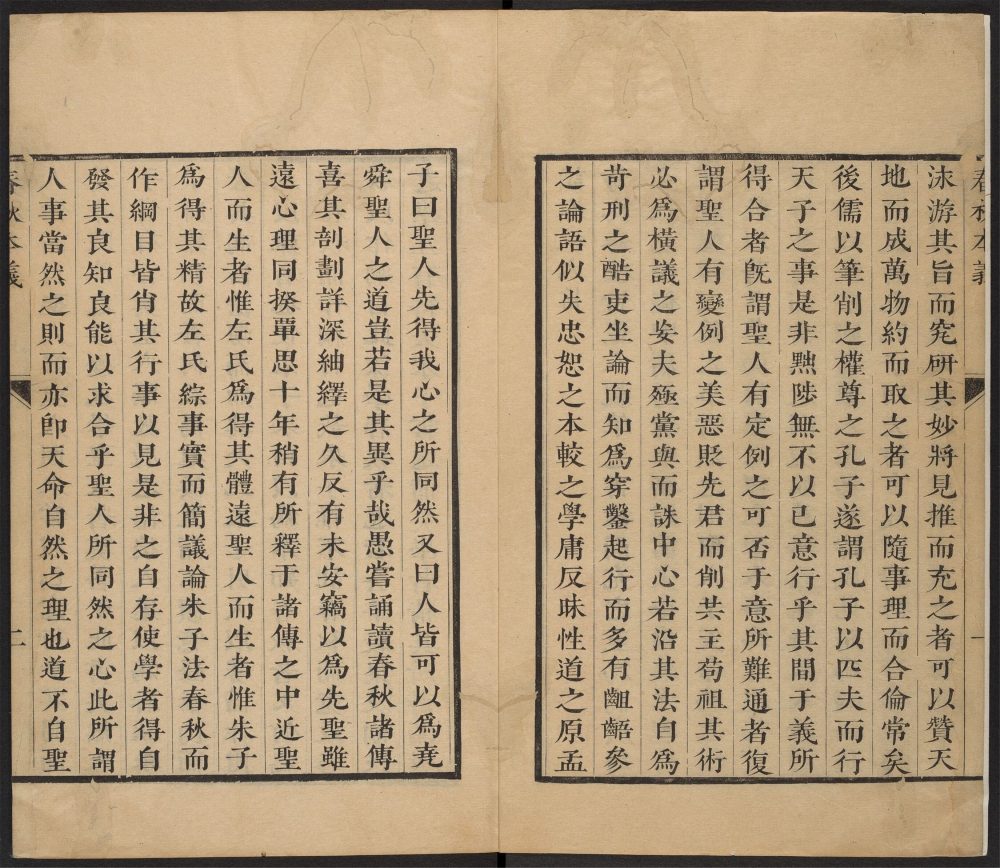 春秋本義
一
泳游其旨而究研其妙將見推而充之者可以贊天
地而成萬物約而取之者可以隨事理而合倫常矣
後儒以筆削之權尊之孔子遂謂孔子以匹夫而行
天子之事是非黜陟無不以已意行乎其間于義所
得合者旣謂聖人有定例之可否于意所難通者復
謂聖人有變例之美惡貶先君而削共主苟祖其術
必爲橫議之妄夫殛黨與而誅中心若沿其法自爲
苛刑之酷吏坐論而知爲穿鑿起行而多有齟齬參
之論語似失忠恕之本較之學庸反昧性道之原孟
子曰聖人先得我心之所同然又曰人皆可以爲堯
舜聖人之道豈若是其異乎哉愚嘗誦讀春秋諸傳
喜其剖劃詳深紬繹之久反有未安竊以爲先聖雖
遠心理同揆覃思十年稍有所釋于諸傳之中近聖
人而生者惟左氏爲得其體遠聖人而生者惟朱子
爲得其精故左氏綜事實而簡議論朱子法春秋而
作綱目皆肖其行事以見是非之自存使學者得自
發其良知良能以求合乎聖人所同然之心此所謂
人事當然之則而亦卽天命自然之理也道不自聖
春秋本義
二